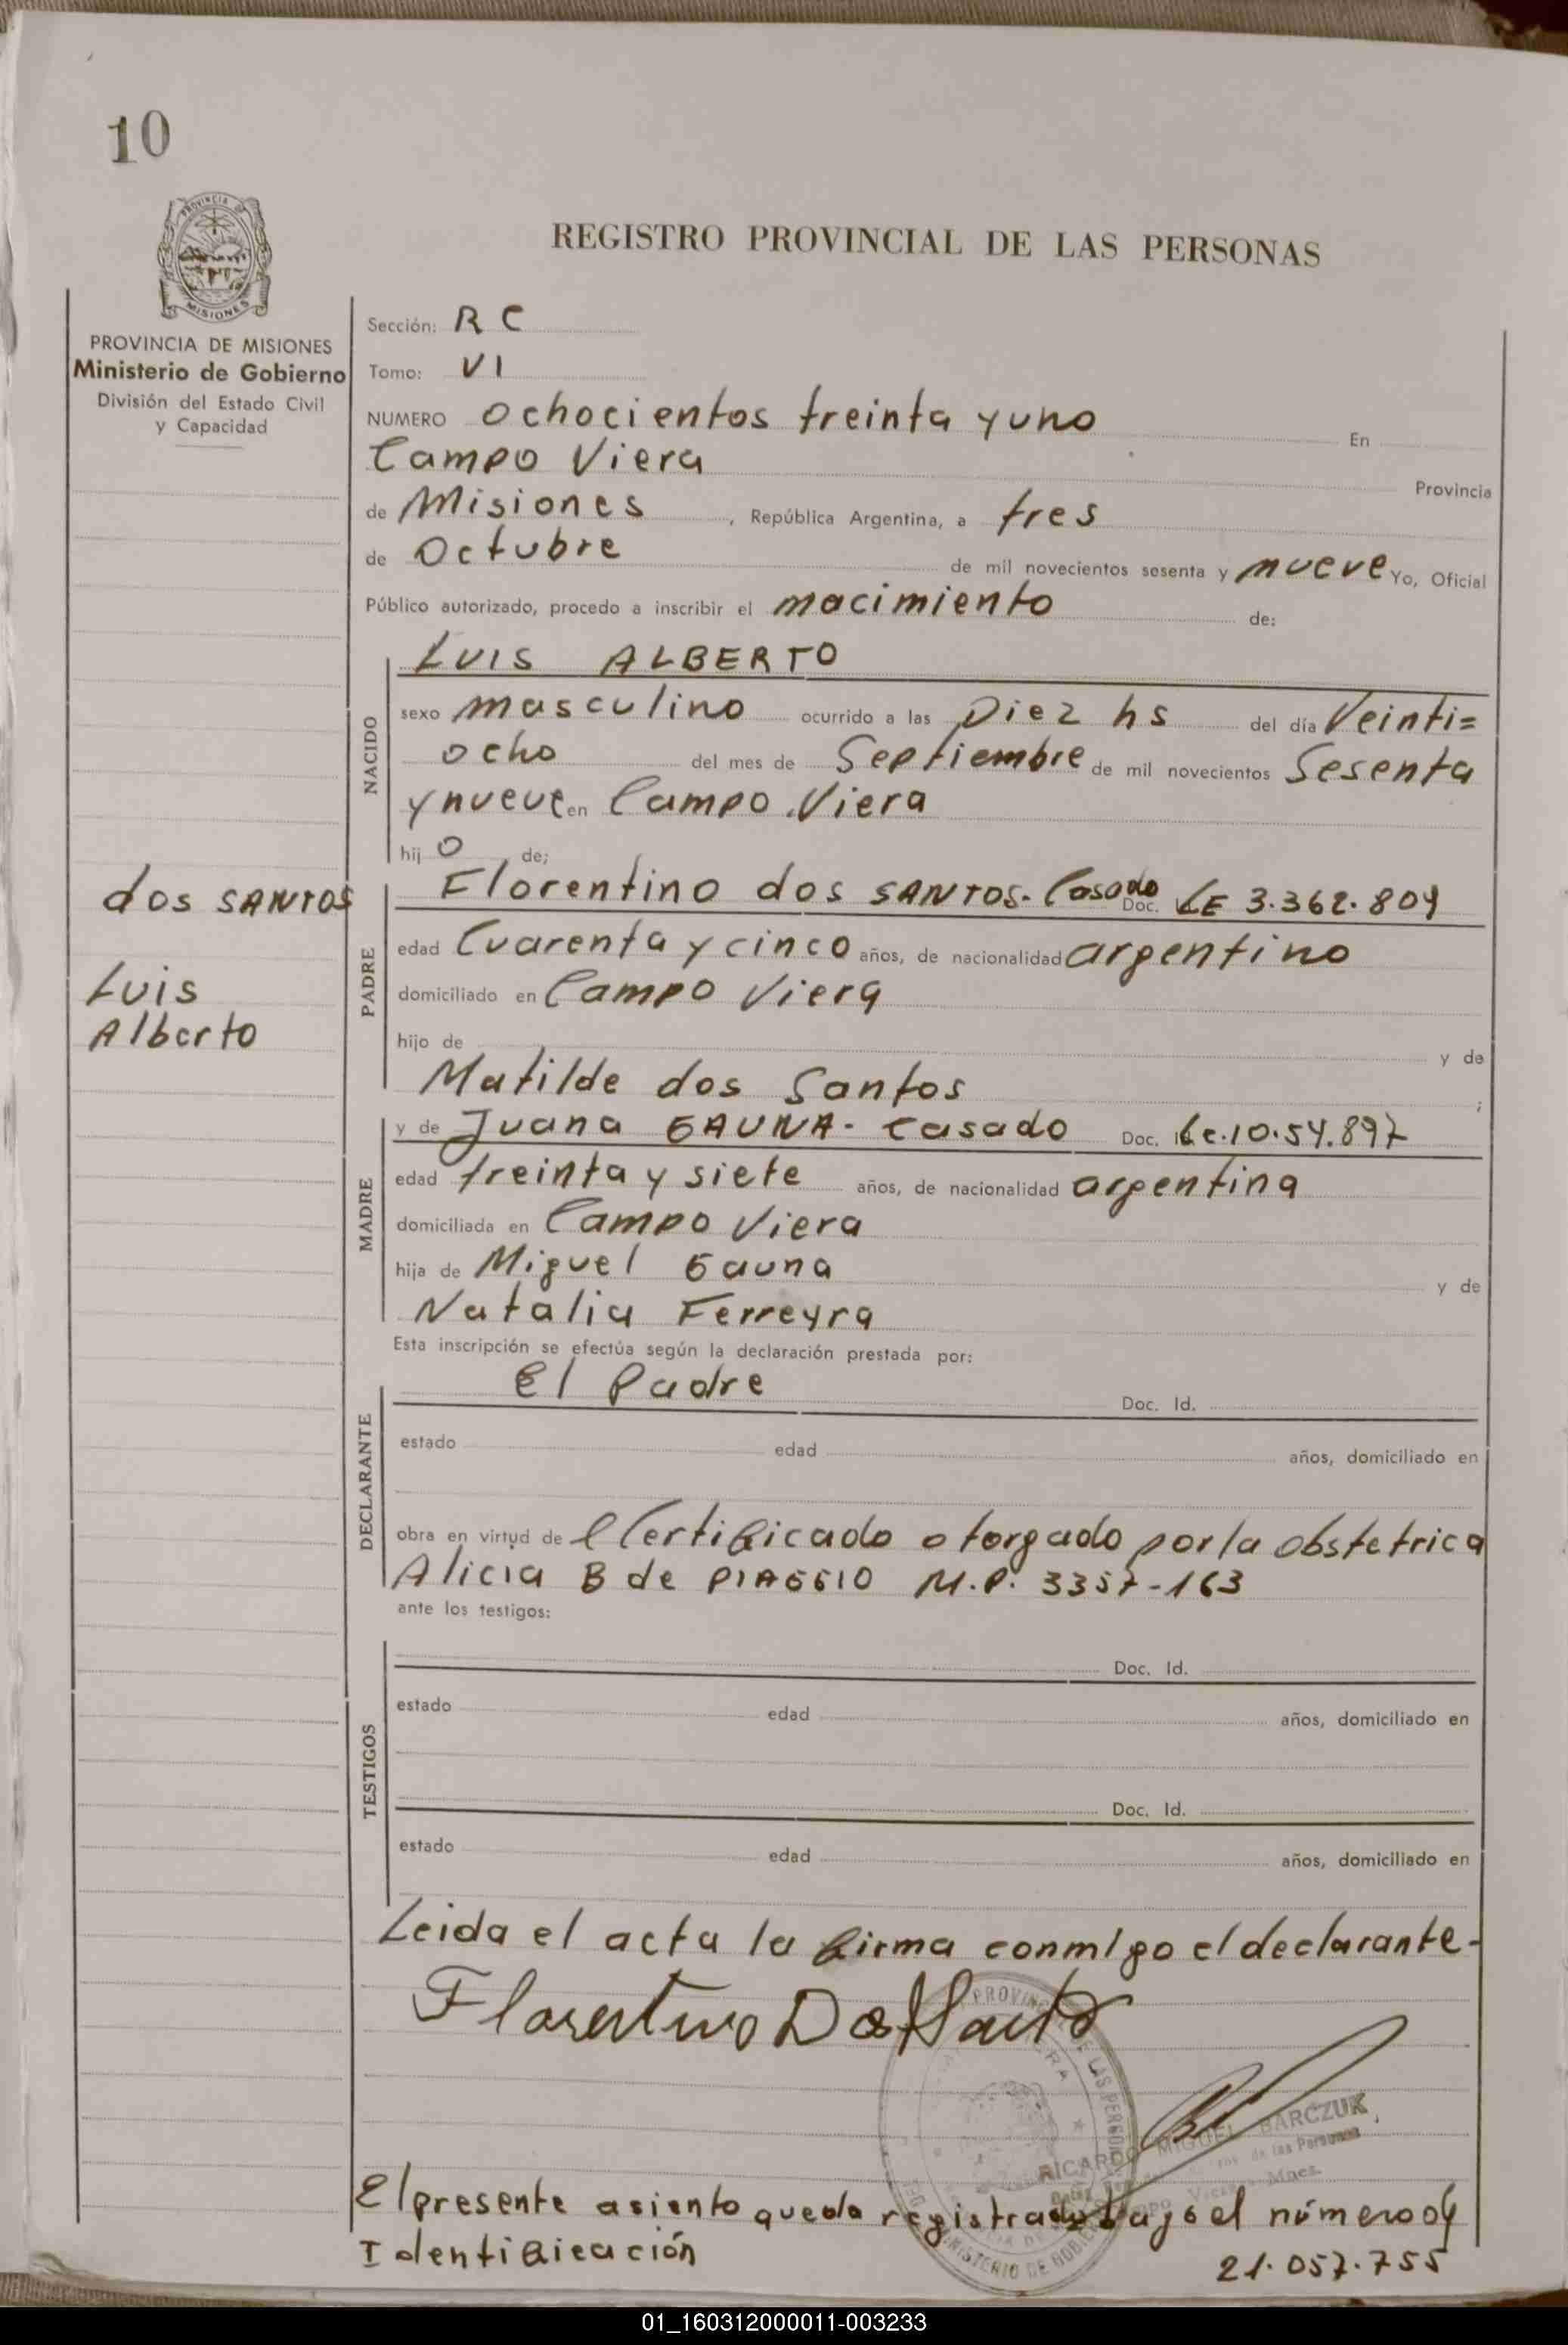 10
PROVINCIA DE
MISIONES
REGISTRO PROVINCIAL DE LAS PERSONAS
PROVINCIA DE MISIONES
Ministerio de Gobierno
División del Estado Civil
y Capacidad
Sección: R C
Tomo: VI
NUMERO ochocientos treinta y uno En
Campo Viera Provincia
de Misiones, República Argentina, a tres
de Octubre de mil novecientos sesenta y nueve Yo, Oficial
Público autorizado, procedo a inscribir el nacimiento de:
NACIDO
LUIS ALBERTO
sexo masculino ocurrido a las Diez hs del día Veinti=
ocho del mes de Septiembre de mil novecientos Sesenta
y nueve en Campo Viera
hijo de;
dos SANTOS
Luis
Alberto
PADRE
Florentino dos SANTOS- Casado Doc. LE 3.362.809
edad Cuarenta y cinco años, de nacionalidad argentino
domiciliado en Campo Viera
hijo de y de
Matilde dos Santos ;
MADRE
y de Juana GAUNA- Casado Doc. Lc.10.54.897
edad treinta y siete años, de nacionalidad argentina
domiciliada en Campo Viera
hija de Miguel Gauna y de
Natalia Ferreyra
Esta inscripción se efectúa según la declaración prestada por:
DECLARANTE
El Padre Doc. Id.
estado edad años, domiciliado en
obra en virtud de l Certificado otorgado por la obstetrica
Alicia B de PIAGGIO M.P. 3357-163
ante los testigos:
TESTIGOS
Doc. Id.
estado edad años, domiciliado en
Doc. Id.
estado edad años, domiciliado en
Leida el acta la firma conmigo el declarante-
Florentino Dos Santos
RICARDO MIGUEL BARCZUK
de las Personas
Mnes.
El presente asiento queda registrado bajo el número de
Identificación 21.057.755
01_160312000011-003233